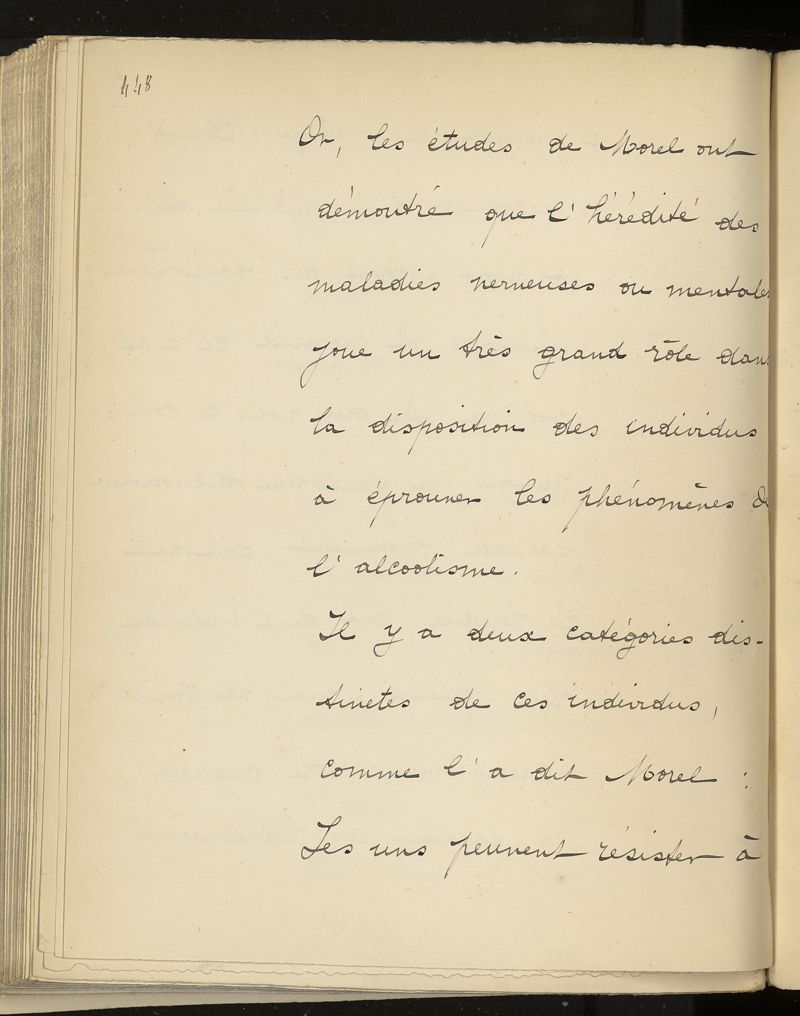 448
Or, les études de Morel ont
démontré que l'hérédité des
maladies nerveuses ou mentales
joue un très grand rôle dans
la disposition des individus
à éprouver les phénomènes de
l'alcoolisme.
Il y a deux catégories dis-
tinctes de ces individus,
comme l'a dit Morel :
Les uns peuvent résister à